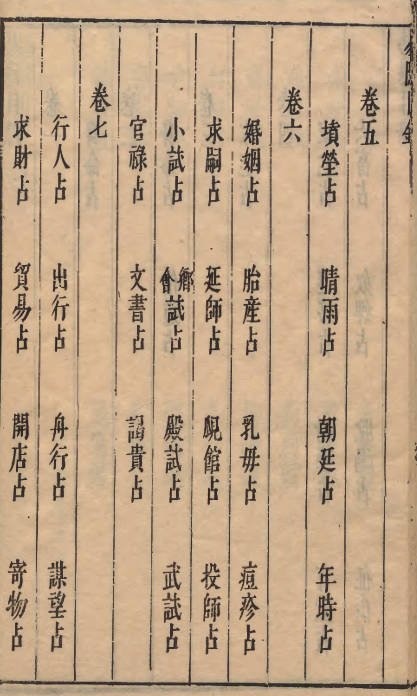 卷五
墳塋占 晴雨占 朝廷占 年時占
卷六
婚姻占 胎産占 乳母占 痘疹占
求嗣占 延師占 覓館占 投師占
小試占 鄉會試占 殿試占 武試占
官祿占 文書占 謁貴占
卷七
行人占 出行占 舟行占 謀望占
求財占 貿易占 開店占 寄物占